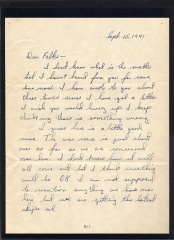 Sept 15, 1941
Dear Folks—
I don't know what is the matter
but I haven't heard from you for some
time now. I have wrote to you about
three times since I have got a letter.
I wish you would hurry up. I keep
thinking there is something wrong.
I guess here is a little good
news. The war scare is just about
over as far as we are concerned
over here. I don't know how it will
all come out but I think everything
will be OK. I am not supposed
to mention anything we have over
here but we are getting the latest
ships out